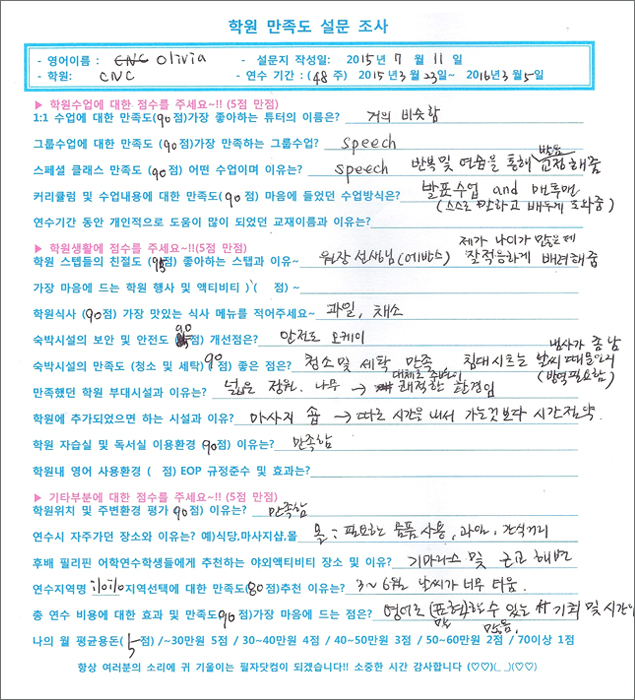 학원 만족도 설문 조사
- 영어이름 : CNC Olivia - 설문지 작성일: 2015년 7 월 11 일
- 학원: CNC - 연수 기간 : (48 주) 2015년 3 월 23일~ 2016년 3 월 5일
▶ 학원수업에 대한 점수를 주세요~!! (5점 만점)
1:1 수업에 대한 만족도(90점)가장 좋아하는 튜터의 이름은? 거의 비슷함
그룹수업에 대한 만족도 (90점)가장 만족하는 그룹수업? speech
스페셜 클래스 만족도 (90점) 어떤 수업이며 이유는? speech 반복 및 연습을 통해 발음 교정해줌
커리큘럼 및 수업내용에 대한 만족도(90점) 마음에 들었던 수업방식은? 발표수업 and 맨투맨
(스스로 말하고 배우게 도와줌)
연수기간 동안 개인적으로 도움이 많이 되었던 교재이름과 이유는?
▶ 학원생활에 점수를 주세요~!!(5점 만점)
학원 스텝들의 친절도 (95점) 좋아하는 스탭과 이유~ 원장선생님(에반스) 제가 나이가 많은데 잘적응하게 배려해줌
가장 마음에 드는 학원 행사 및 액티비티 )'( 점) ~
학원식사 (90점) 가장 맛있는 식사 메뉴를 적어주세요~ 과일, 채소
숙박시설의 보안 및 안전도 (90점) 개선점은? 안전도 오케이
숙박시설의 만족도 (청소 및 세탁) 90점) 좋은 점은? 청소 및 세탁 만족 침대시트는 날씨 때문에 냄새가 좀 남
(방역필요함)
만족했던 학원 부대시설과 이유는? 넓은 정원. 나무 → 대체로 주변이 쾌적한 환경임
학원에 추가되었으면 하는 시설과 이유? 마사지 숍 → 따로 시간을 내서 가는것 보다 시간절약.
학원 자습실 및 독서실 이용환경 90점) 이유는? 만족함
학원내 영어 사용환경 ( 점) EOP 규정준수 및 효과는?
▶ 기타부분에 대한 점수를 주세요~!! (5점 만점)
학원위치 및 주변환경 평가 90점) 이유는? 만족함
연수시 자주가던 장소와 이유는? 예)식당,마사지샵,몰 몰 : 필요한 용품 사용, 과일, 간식거리
후배 필리핀 어학연수학생들에게 추천하는 야외액티비티 장소 및 이유? 기마라스 및 근교 해변
연수지역명 iloilo 지역선택에 대한 만족도(80점)추천 이유는? 3~6월은 날씨가 너무 더움.
총 연수 비용에 대한 효과 및 만족도(90점)가장 마음에 드는 점은? 영어로 (표현)할 수 있는 기회 및 시간이
많음.
나의 월 평균용돈(5점) /~30만원 5점 / 30~40만원 4점 / 40~50만원 3점 / 50~60만원 2점 / 70이상 1점
항상 여러분의 소리에 귀 기울이는 필자닷컴이 되겠습니다!! 소중한 시간 감사합니다 (♡♡)(_ _)(♡♡)